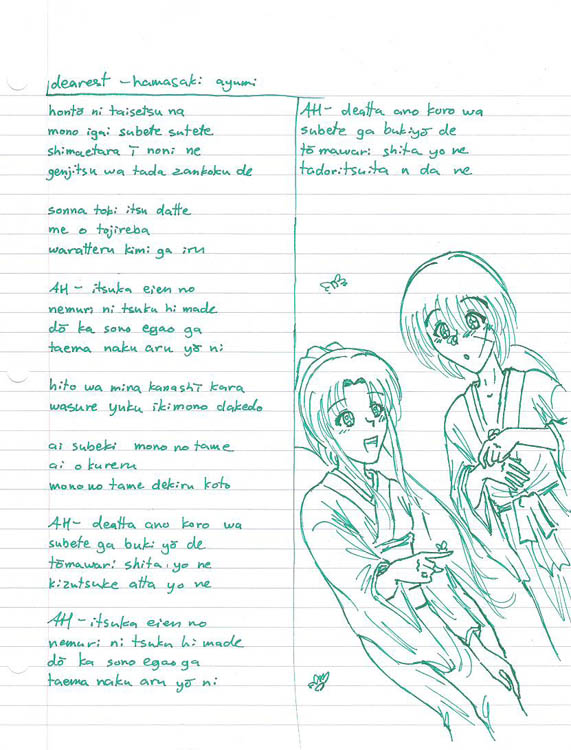 dearest - hamasaki ayumi
hontō ni taisetsu na
mono igai subete sutete
shimaetara ī noni ne
genjitsu wa tada zankoku de
sonna toki itsu datte
me o tojireba
waratteru kimi ga iru
AH- itsuka eien no
nemuri ni tsuku hi made
dō ka sono egao ga
taema naku aru yō ni
hito wa mina kanashī kara
wasure yuku ikimono dakedo
ai subeki mono no tame
ai o kureru
mono no tame dekiru koto
AH- deatta ano koro wa
subete ga buki yō de
tōmawari shita yo ne
kizutsuke atta yo ne
AH- itsuka eien no
nemuri ni tsuku hi made
dō ka sono egao ga
taema naku aru yō ni
AH- deatta ano koro wa
subete ga bukiyō de
tōmawari shita yo ne
tadoritsuita n da ne